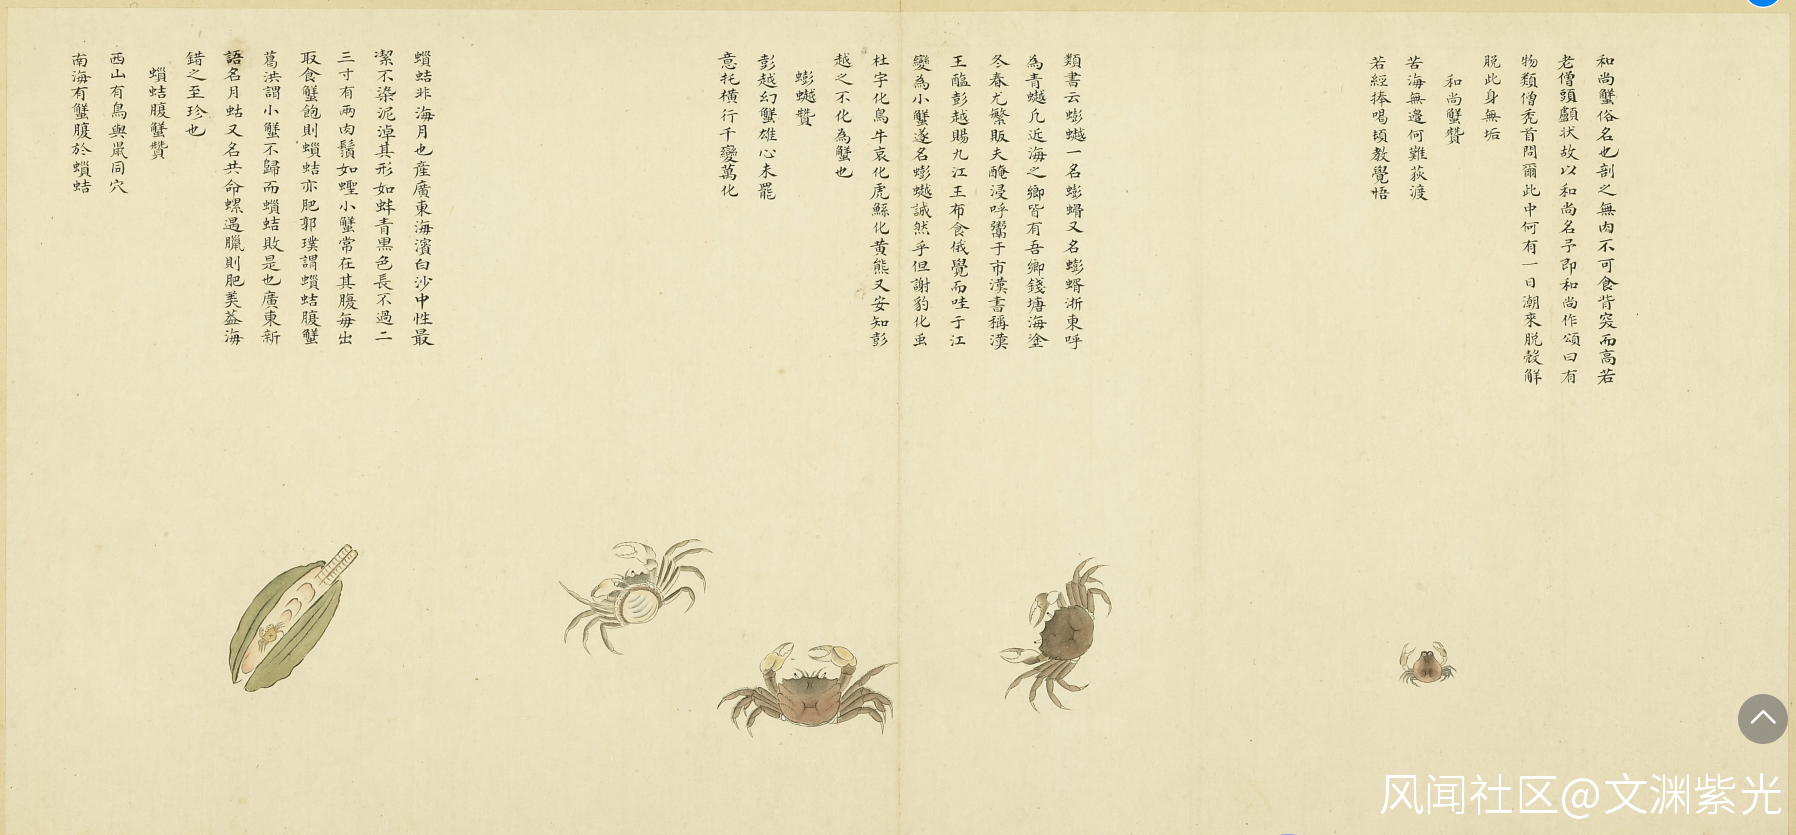 和尚蟹俗名也剖之無肉不可食背突而高若
老僧頭顱狀故以和尚名予即和尚作頌曰有
物類僧禿首問爾此中何有一日潮來脫殼解
脫此身無垢
和尚蟹贊
苦海無邊何難荻渡
若經捧喝頃教覺悟
類書云蟛蟚一名蟛蜎又名蟛蝟浙東呼
為青蟚凡近海之鄉皆有吾鄉錢塘海塗
冬春尤繁販夫醃浸呼鬻于市漢書稱漢
王醢彭越賜九江王布食俄覺而哇于江
變為小蟹遂名蟛蟚誠然乎但謝豹化虫
杜宇化鳥牛哀化虎鯀化黄熊又安知彭
越之不化為蟹也
蟛蟚贊
彭越幻蟹雄心未罷
意托橫行千變萬化
蝐蛣非海月也產廣東海濱白沙中性最
潔不染泥淖其形如蚌青黑色長不過二
三寸有兩肉鬚如蟶小蟹常在其腹每出
取食蟹飽則蝐蛣亦肥郭璞謂蝐蛣腹蟹
葛洪謂小蟹不歸而蝐蛣敗是也廣東新
語名月蛄又名共命螺遇臘則肥美葢海
錯之至珍也
蝐蛣腹蟹贊
西山有鳥與鼠同穴
南海有蟹腹於蝐蛣
风闻社区@文渊紫光